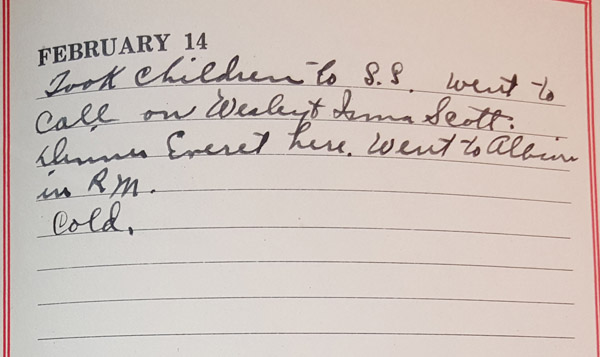 FEBRUARY 14
Took children to S.S. Went to
call on Wesley & Irma Scott.
Dinner Everet here. Went to Albion
in P.M.
Cold.